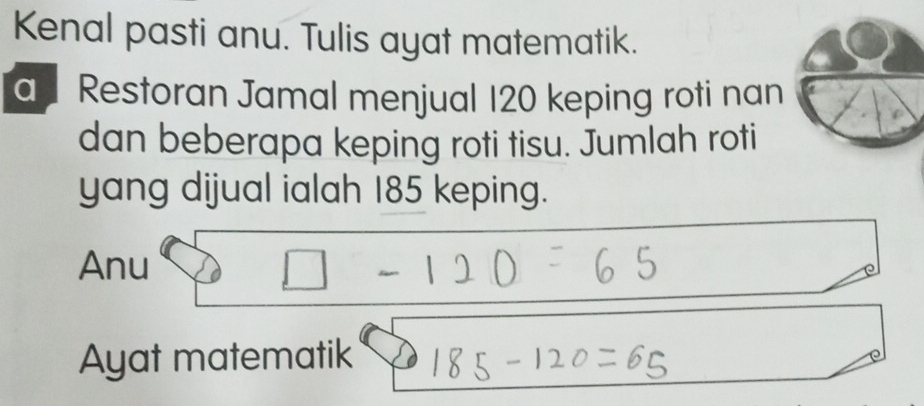 Kenal pasti anu. Tulis ayat matematik.
a Restoran Jamal menjual 120 keping roti nan
dan beberapa keping roti tisu. Jumlah roti
yang dijual ialah 185 keping.
Anu □ - 120 = 65
Ayat matematik 185 - 120 = 65